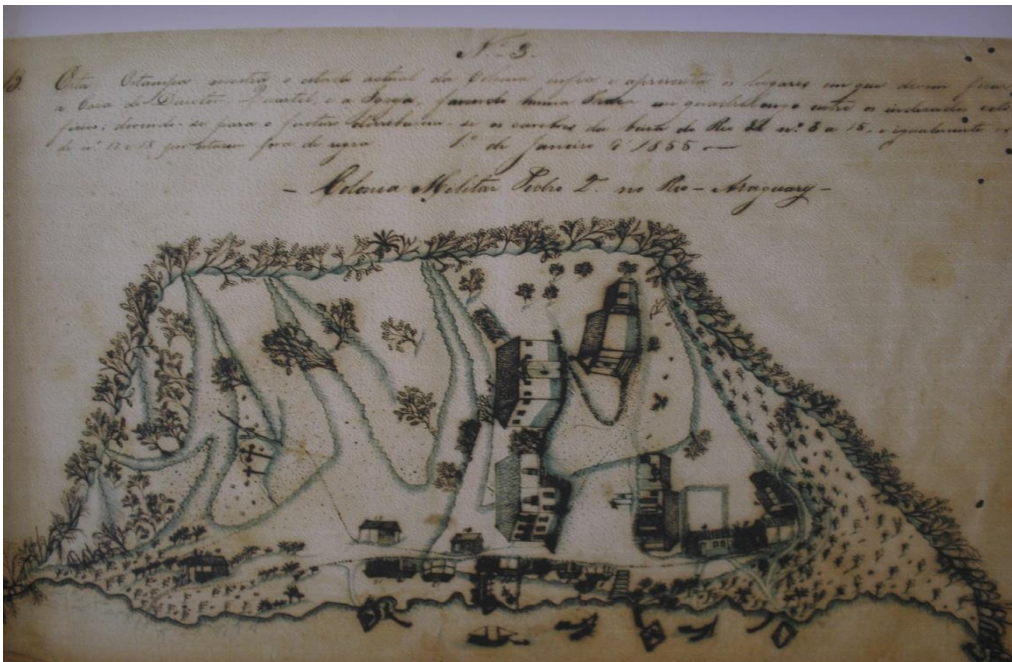 N.º 3.
Esta Estampa mostra o estado actual da Colonia e apresenta os lugares em que devem ficar
a Casa do Director, Quartel, e a Igreja, fazendo huma em quadrilongo entre os
devendo-se para o futuro os da beira do Rio de n.º 5 a 15, e igualmente os
de n.º 17 e 18 por estarem fora de regra 1.º de Janeiro de 1855
- Colonia Militar Pedro 2.º no Rio - Araguary -